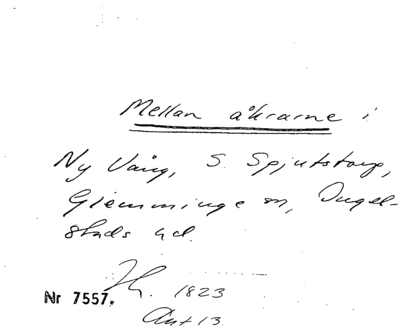 Mellan åkrarne i
Ny Vång, S. Spjutstorp,
Glemminge sn, Ingel-
stads hd.
1823
Nr 7557.
Akt 13.